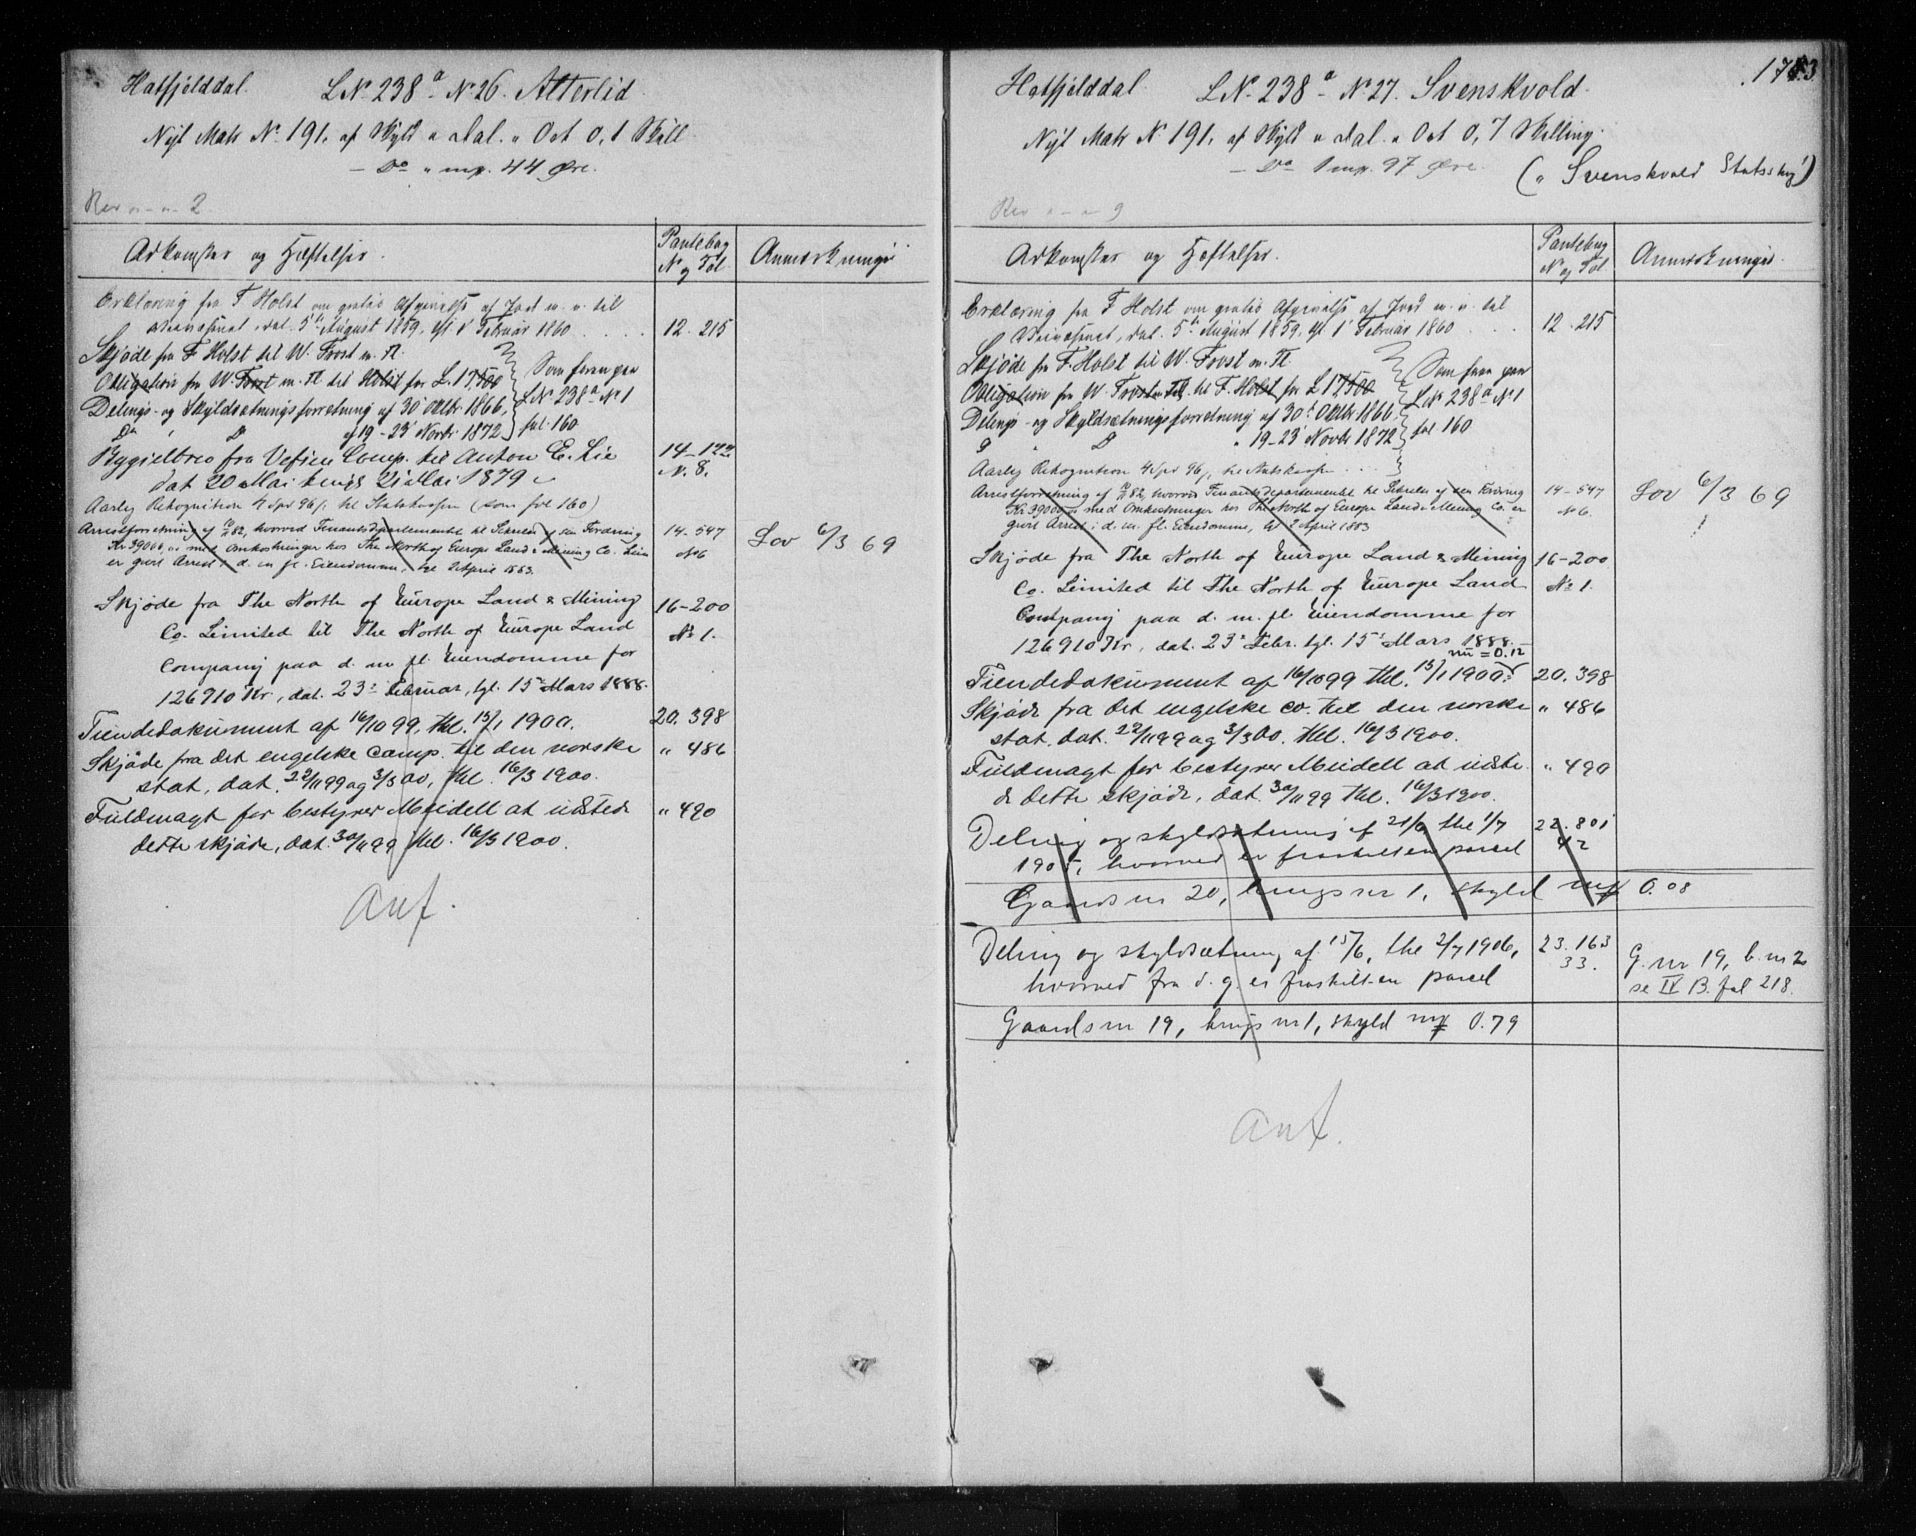 Hatfjelddal. LN. 238 a N. 26. Atterlid.
Nyt Matr N. 191. af Skyld " Dal. " Ort 0,1 Skill
- Do " mp. 44 Øre.
Rev " - " - 2
Adkomster og Hæftelser.
Pantebog
N og Fol.
Anmærkninger
Erklæring fra F Holst om gratis Afgivelse af Jord m. v. til
Veivæsenet, dat. 5te August 1859, tgl. 1 Februar 1860 12-215
Skjøde fra F Holst til W. Frost m. fl.
Obligation fra W. Frost m. fl til Holst for L. 17,500
Delings- og Skyldsætningsforretning af 30 Oktbr 1866,
Do " D af 19-23 Novbr 1872
Som foran paa
LN 238 a N 1
fol. 160
Bygselbrev fra Vefsen Comp. til Anton E. Lie 14-172
dat 20 Mai tingl. 21 Mai 1879 N. 8.
Aarlig Rekognition 4 Spd 96 s. til Statskassen (som fol 160)
Arrestforretning af 82, hvorved Finantsdepartementet til Sikrelse af sin Fordring 14-547
Kr 39000, " med Omkostninger hos The North of Europe Land & Mining Co. Lim N 6
er gjort Arrest i d. m fl. Eiendomme, tgl 2 April 1883.
Lov 6/3 69
Skjøde fra The North of Europe Land & Mining 16-200
Co. Limited til The North of Europe Land N 1.
Company paa d. m fl. Eiendomme for
126910 Kr, dat. 23 Februar, tgl. 15 Mars 1888.
Tiendedokument af 16/10 99, thl. 15/1 1900. 20. 398
Skjøde fra det engelske comp. til den norske " 486
stat, dat. 29/11 99 og 3/3 00, thl. 16/3 1900.
Fuldmagt for bestyrer Meidell at udstede " 490
dette skjøde, dat. 30/11 99 thl. 16/3 1900.
Auf.
1753
Hatfjelddal. LN. 238 a N. 27. Svenskvold.
Nyt Matr N 191. af Skyld " Dal. " Ort 0,7 Skilling.
- Do 1 mp. 97 Øre.
(" Svenskvold Statsskog)
Rev " - " 9
Adkomster og Hæftelser.
Pantebog
N og Fol
Anmærkninger.
Erklæring fra F Holst om gratis Afgivelse af Jord m. v. til
Veivæsenet, dat. 5te August 1859, tgl 1 Februar 1860 12-215
Skjøde fra F. Holst til W. Frost m. fl.
Obligation fra W. Frost m fl til F. Holst for L 17,500
Delings- og Skyldsætningsforretning af 30 Oktbr 1866.
D " 19-23 Novbr 1872
Som foran paa
LN 238 a N 1
fol 160
Aarlig Rekognition 4 Spd 96 s. til Statskassen
Arrestforretning af 82, hvorved Finantsdepartementet til Sikrelse af sin Fordring 14-547
Kr 39000 " med Omkostninger hos The North of Europe Land & Mining Co. er N 6.
gjort Arrest i d. m. fl. Eiendomme, tgl 2 April 1883
Lov 6/3 69
Skjøde fra The North of Europe Land & Mining 16-200
Co. Limited til The North of Europe Land N 1.
Company paa d. m. fl Eiendomme for
126910 Kr, dat. 23 Febr. tgl. 15 Mars 1888.
nu = 0.12
Tiendedokument af 16/10 99 thl. 15/1 1900. 20. 398
Skjøde fra det engelske co. til den norske " 486
stat, dat. 29/11 99 og 3/3 00. thl. 16/3 1900.
Fuldmagt for bestyrer Meidell at udste- " 490
de dette skjøde, dat. 30/11 99 thl. 16/3 1900.
Deling og skyldsætning af 21/6 thl 1/7 22. 801
1905, hvorved er fraskilt en parcel 42
Gaards nr 20, brugs nr 1, skyld mp 0.08
Deling og skyldsætning af 15/6, thl 2/7 1906, 23. 163
hvorved fra d. g. er fraskilt en parcel 33.
G. nr 19, b. nr 2
se IV B. fol 218.
Gaards nr 19, brugs nr 1, skyld mp 0.79
Auf.